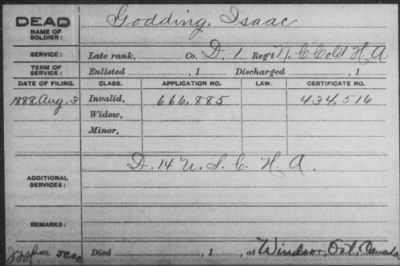 DEAD Godding, Isaac
NAME OF SOLDIER:
SERVICE: Late rank, Co. D, 1 Reg't N. C. Cold H. A.
TERM OF SERVICE: Enlisted , 1 Discharged , 1
DATE OF FILING. CLASS. APPLICATION NO. LAW. CERTIFICATE NO.
1888, Aug. 3 Invalid, 666.885 434.516
Widow,
Minor,
D. 14 U. S. C. H. A.
ADDITIONAL SERVICES:
REMARKS:
Died , 1 , at Windsor, Ont, Canada